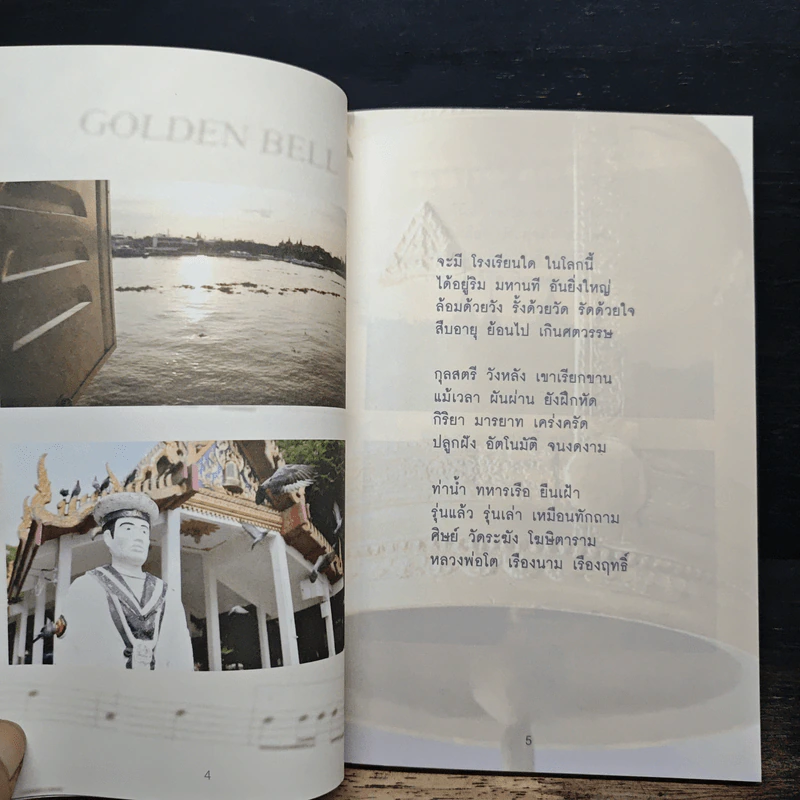 GOLDEN BELL
4
จะมี โรงเรียนใด ในโลกนี้
ได้อยู่ริม มหานที อันยิ่งใหญ่
ล้อมด้วยวัง รั้งด้วยวัด รัดด้วยใจ
สืบอายุ ย้อนไป เกินศตวรรษ
กุลสตรี วังหลัง เขาเรียกขาน
แม้เวลา ผันผ่าน ยังฝึกหัด
กิริยา มารยาท เคร่งครัด
ปลูกฝัง อัตโนมัติ จนงดงาม
ท่าน้ำ ทหารเรือ ยืนเฝ้า
รุ่นแล้ว รุ่นเล่า เหมือนทักถาม
ศิษย์ วัดระฆัง โฆษิตาราม
หลวงพ่อโต เรืองนาม เรืองฤทธิ์
5